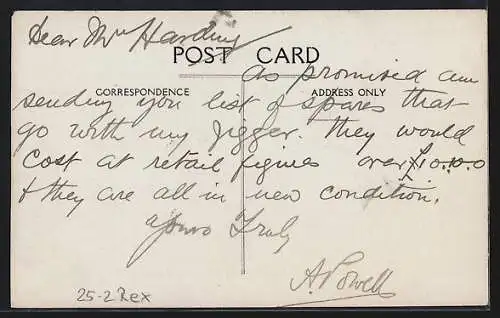 Dear Mr Harding
POST CARD
CORRESPONDENCE ADDRESS ONLY
as promised am
sending you list of spares that
go with my Jigger. They would
cost at retail figures over £10.0.0
& they are all in new condition.
Yours Truly
A. Powell
25-2 Rex